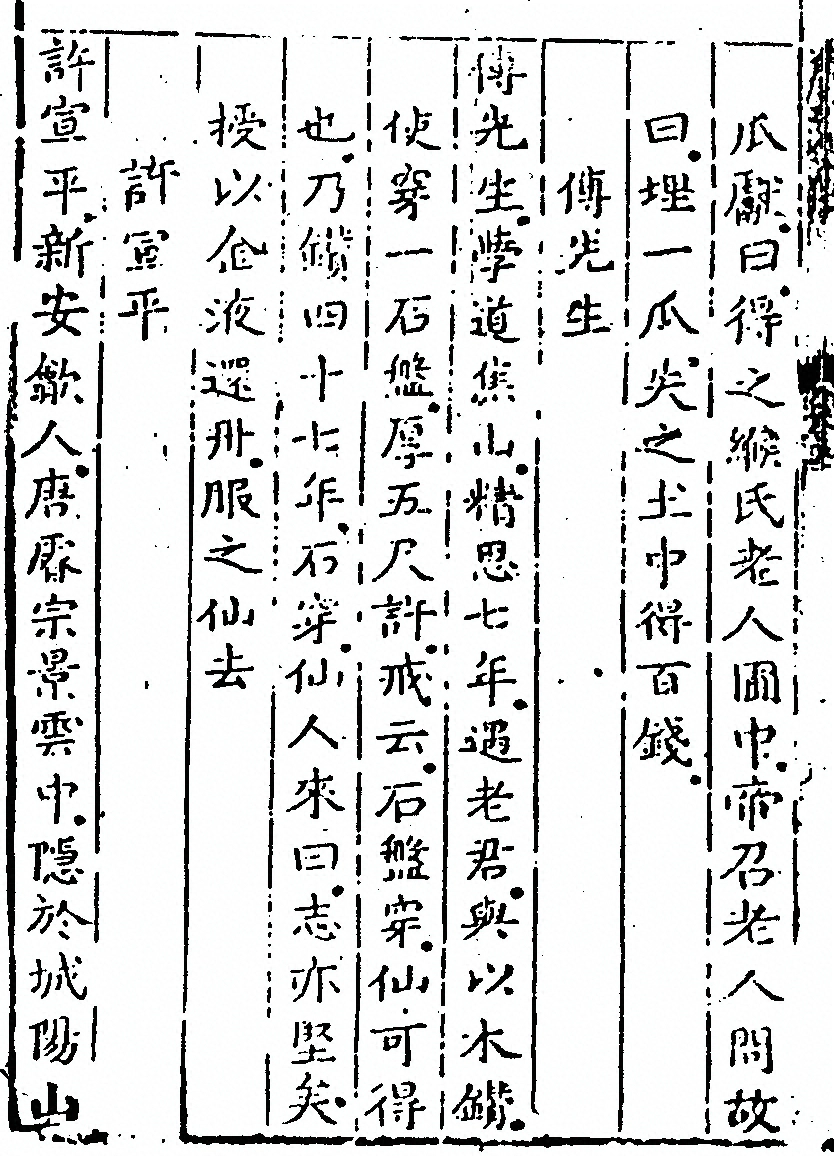 瓜獻曰得之緱氏老人圃中帝召老人問故
曰埋一瓜尖之土中得百錢
傅先生
傅先生學道焦山精思七年遇老君與以木鑽
使穿一石盤厚五尺許戒云石盤穿仙可得
也乃鑽四十七年石穿仙人來曰志亦堅矣
授以金液還丹服之仙去
許宣平
許宣平新安歙人唐睿宗景雲中隱於城陽山